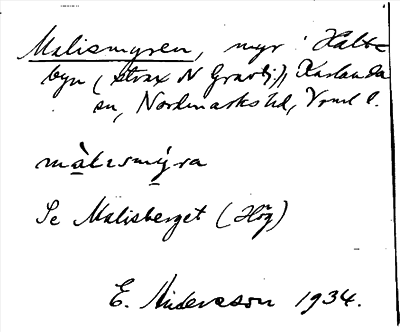 Malismyren, myr i Hälte-
byn (strax N Gravbj.), Karlanda
sn, Nordmarks hd, Vrml l.
màlɩsmy̆ra
Se Malisberget (Hög)
E. Andersson 1934.